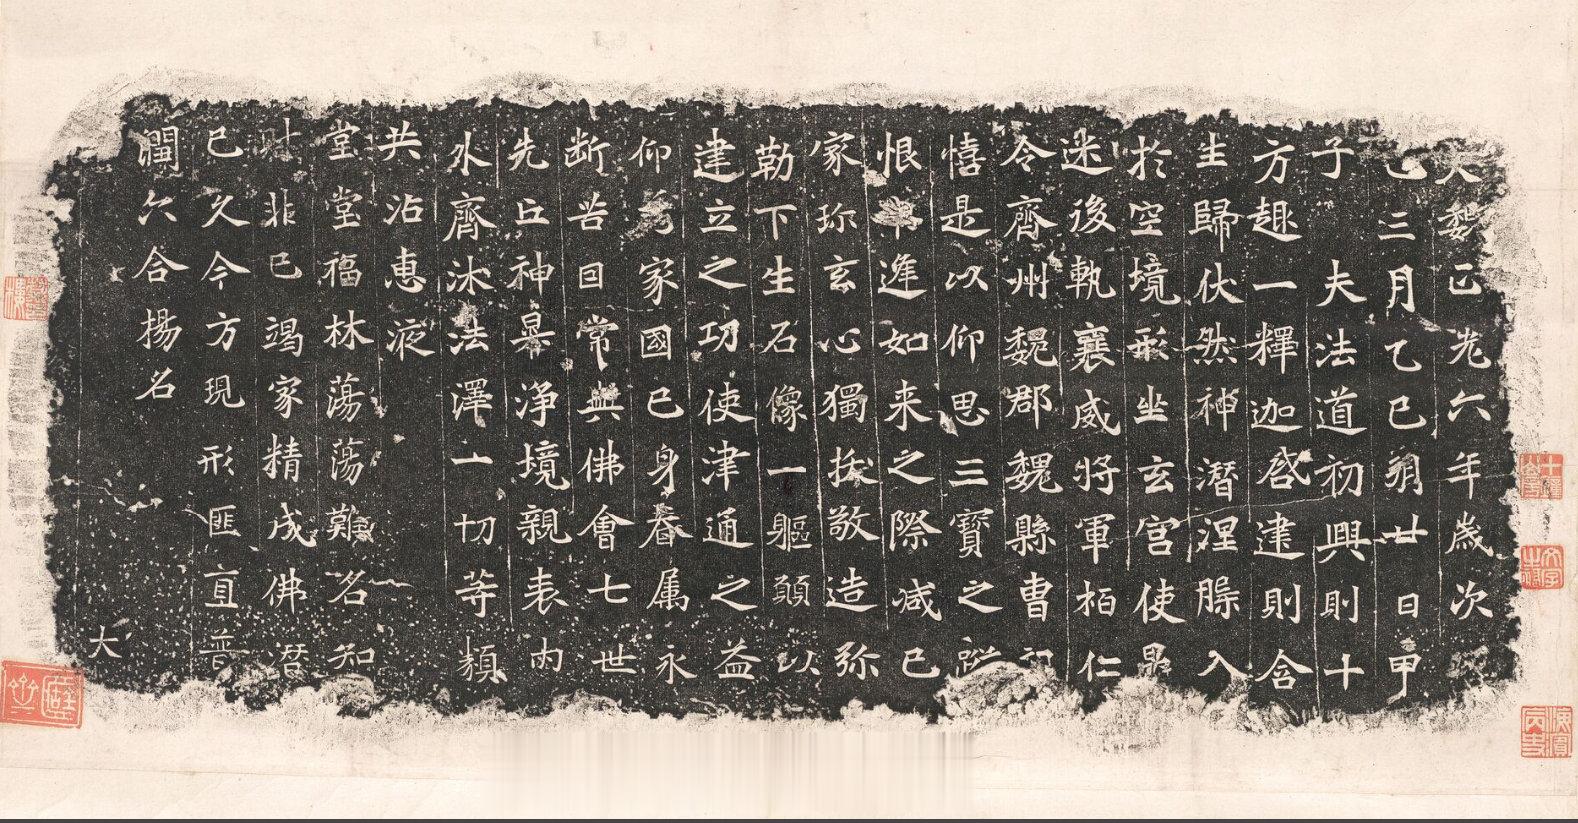 大魏正光六年歲次
乙巳三月乙巳朔廿日甲
子夫法道初興則十
方趣一釋迦啓建則含
生歸伏然神潛涅槃入
於空境形坐玄宮使愚
迷後軌襄威將軍柏仁
令齊州魏郡魏縣曹
憘是以仰思三寶之蹤
恨進如来之際减已
家珎玄心獨拔敬造弥
勒下生石像一軀願以
建之功使津通之益
仰為家國己身眷属永
断苦因常與佛會七世
先亡神昇淨境親表内
外齊沐法澤一切等類
共沾惠液
堂堂福林蕩蕩難名知
財非已竭家精成佛潛
已久今方現形匪直普
潤六合揚名
大